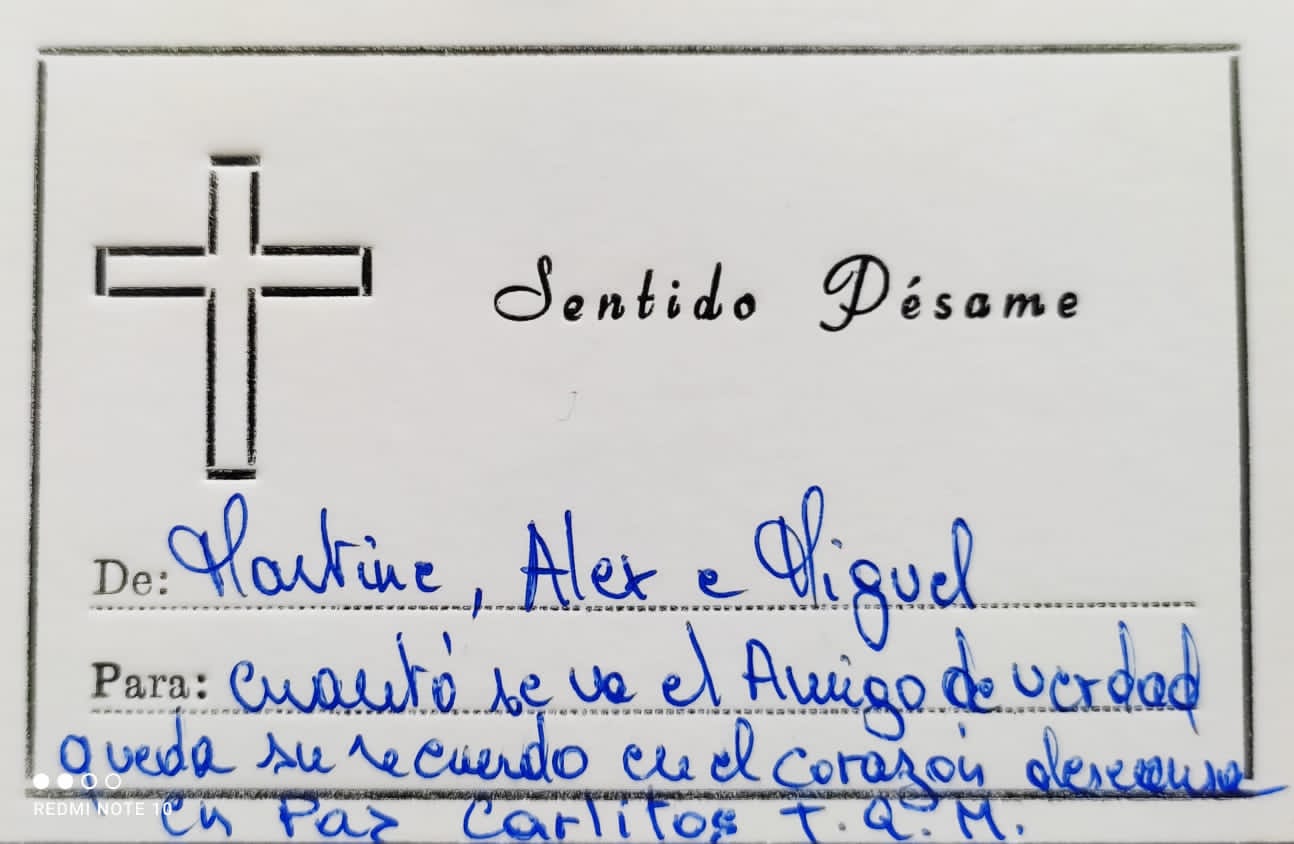 Sentido Pésame
De: Martine, Alex e Miguel
Para: cuantó se va el Amigo de verdad
queda su recuerdo en el corazón descansa
en Paz Carlitos T.Q.M.
REDMI NOTE 10